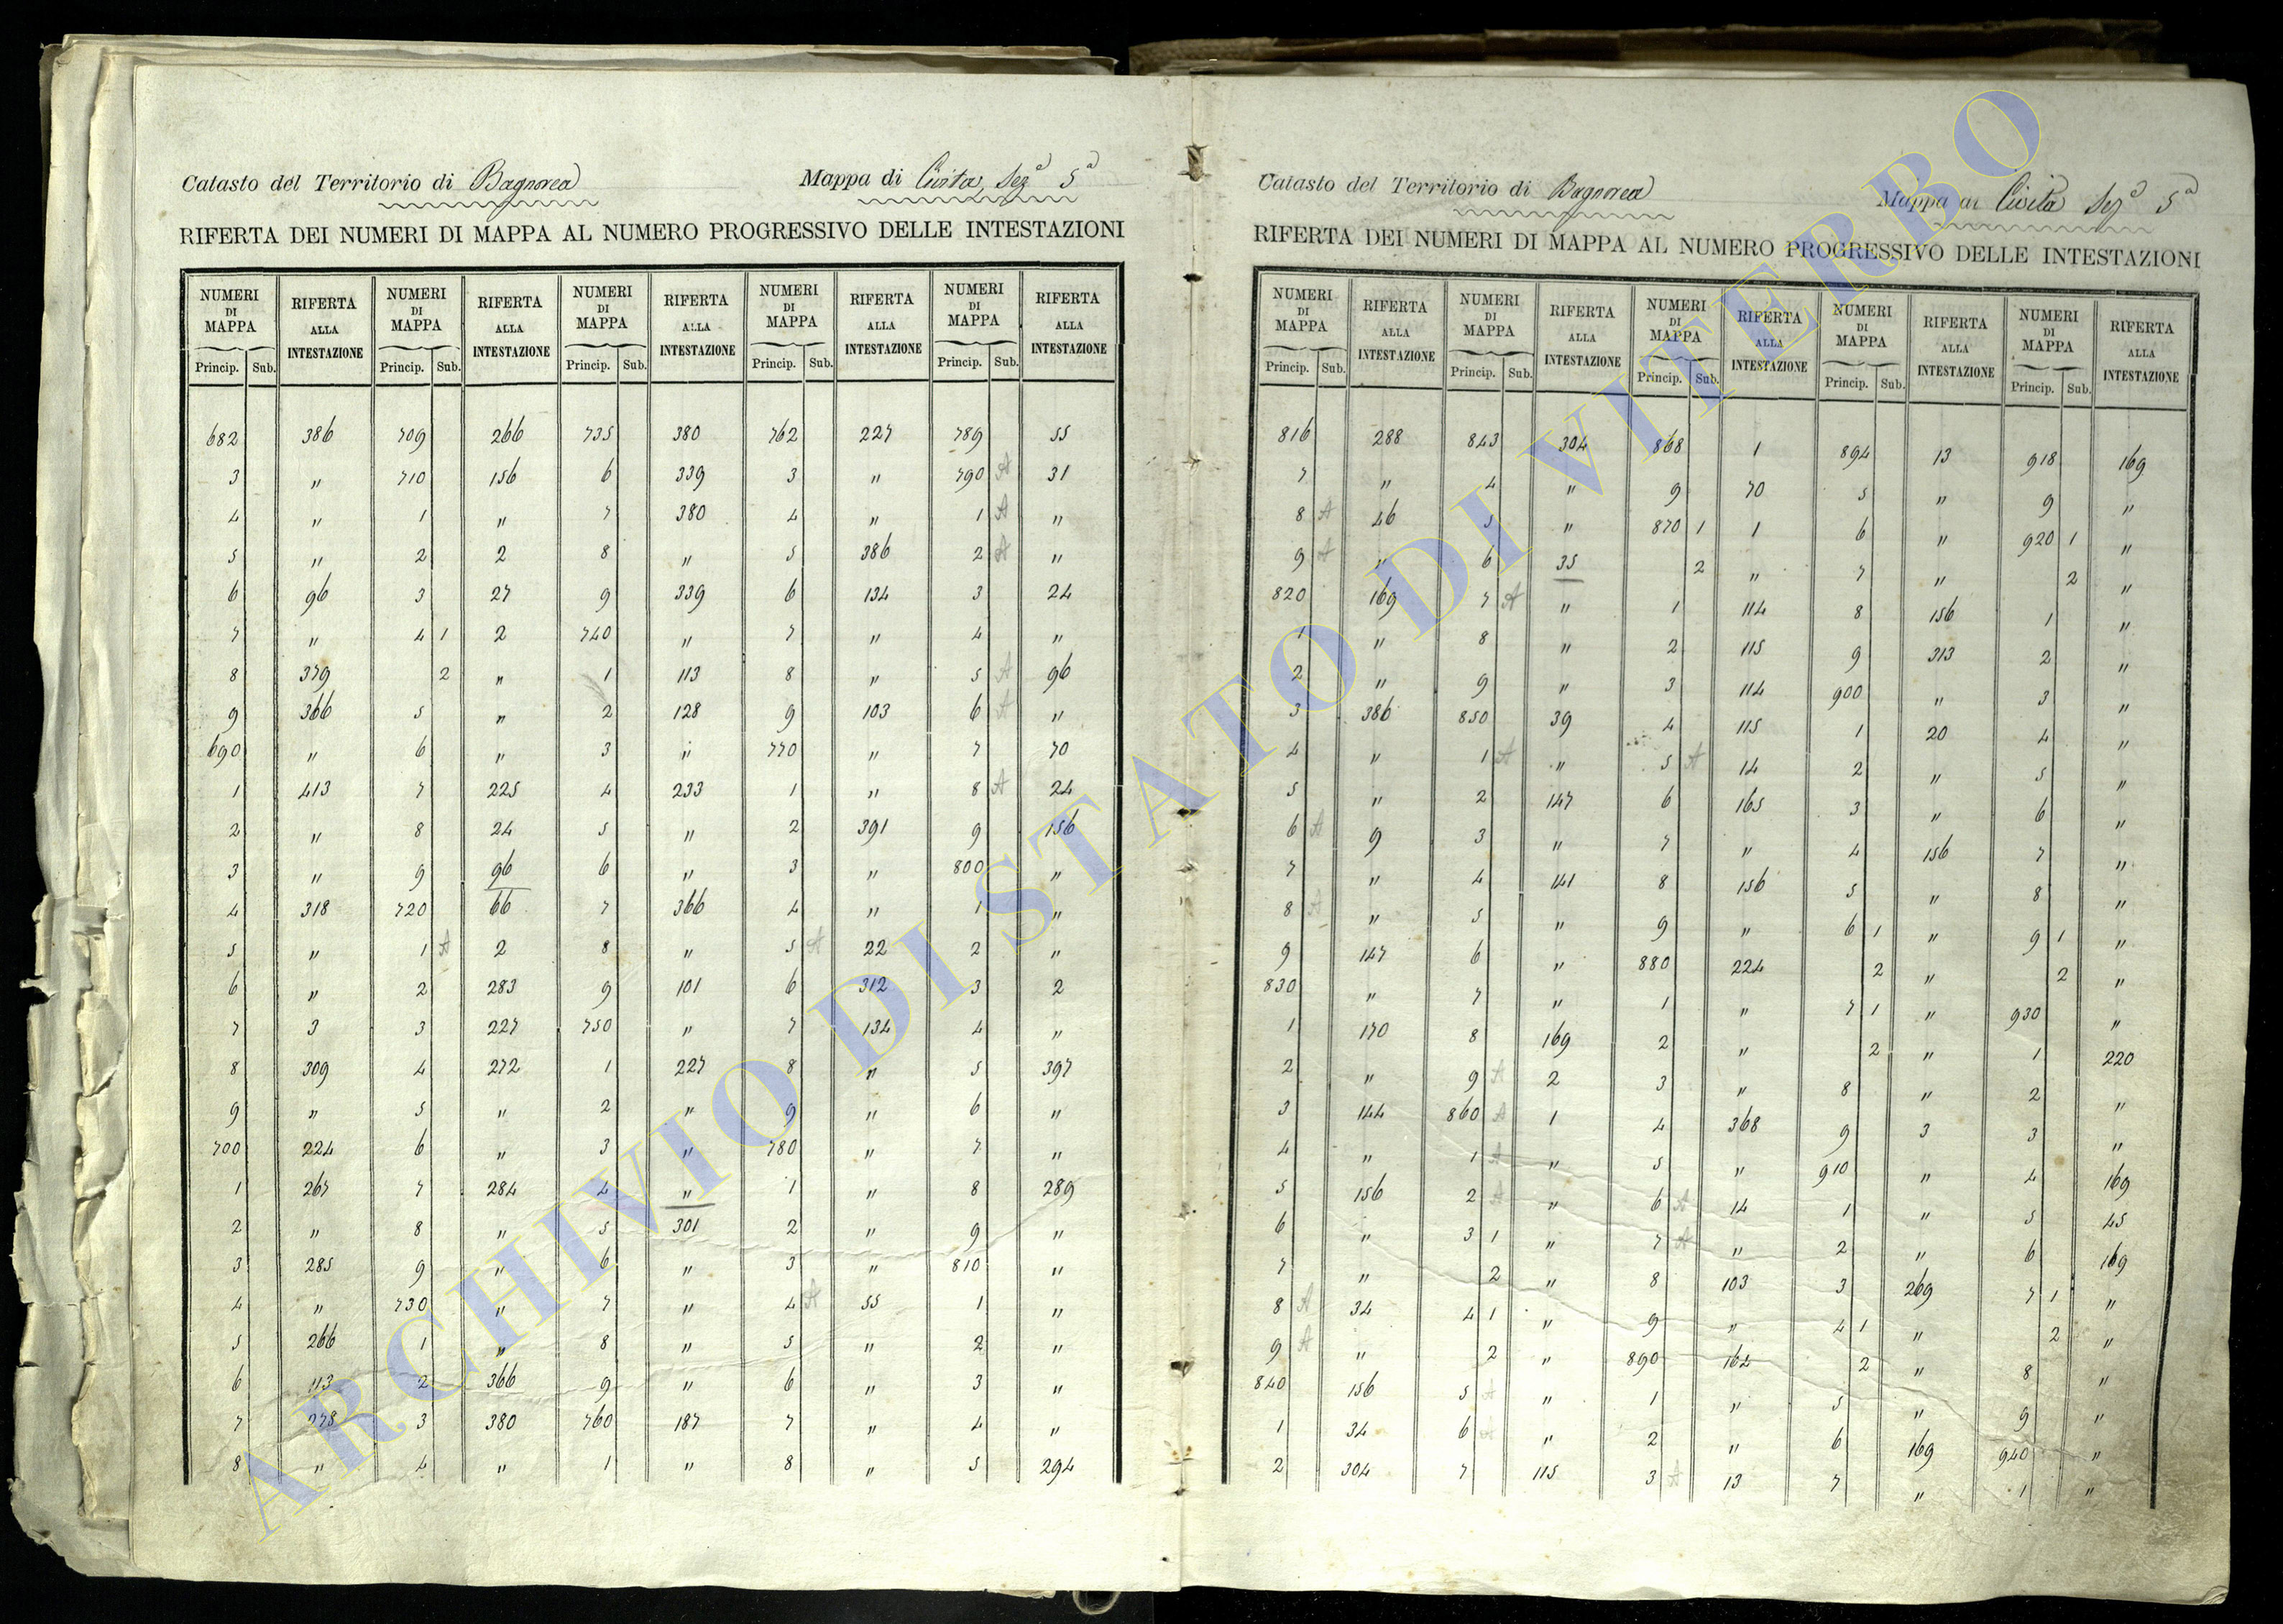 Catasto del Territorio di Bagnorea Mappa di Civita, Sez.ª 5ª
RIFERTA DEI NUMERI DI MAPPA AL NUMERO PROGRESSIVO DELLE INTESTAZIONI
NUMERI DI MAPPA RIFERTA ALLA INTESTAZIONE NUMERI DI MAPPA RIFERTA ALLA INTESTAZIONE NUMERI DI MAPPA RIFERTA ALLA INTESTAZIONE NUMERI DI MAPPA RIFERTA ALLA INTESTAZIONE NUMERI DI MAPPA RIFERTA ALLA INTESTAZIONE
Princip. Sub. Princip. Sub. Princip. Sub. Princip. Sub. Princip. Sub.
682 386 709 266 735 380 762 227 789 55
3 " 710 156 6 339 3 " 790 A 31
4 " 1 " 7 380 4 " 1 A "
5 " 2 2 8 " 5 386 2 A "
6 96 3 27 9 339 6 134 3 24
7 " 4 1 2 740 " 7 " 4 "
8 379 2 " 1 113 8 " 5 A 96
9 366 5 " 2 128 9 103 6 A "
690 " 6 " 3 " 770 " 7 70
1 413 7 225 4 233 1 " 8 A 24
2 " 8 24 5 " 2 391 9 156
3 " 9 96 6 " 3 " 800 "
4 318 720 66 7 366 4 " 1 "
5 " 1 A 2 8 " 5 A 22 2 "
6 " 2 283 9 101 6 312 3 2
7 3 3 227 750 " 7 134 4 "
8 309 4 272 1 227 8 " 5 397
9 " 5 " 2 " 9 " 6 "
700 224 6 " 3 " 780 " 7 "
1 267 7 284 4 " 1 " 8 289
2 " 8 " 5 301 2 " 9 "
3 285 9 " 6 " 3 " 810 "
4 " 730 " 7 " 4 A 55 1 "
5 266 1 " 8 " 5 " 2 "
6 113 2 366 9 " 6 " 3 "
7 278 3 380 760 187 7 " 4 "
8 " 4 " 1 " 8 " 5 294
Catasto del Territorio di Bagnorea Mappa di Civita Sez.ª 5ª
RIFERTA DEI NUMERI DI MAPPA AL NUMERO PROGRESSIVO DELLE INTESTAZIONI
NUMERI DI MAPPA RIFERTA ALLA INTESTAZIONE NUMERI DI MAPPA RIFERTA ALLA INTESTAZIONE NUMERI DI MAPPA RIFERTA ALLA INTESTAZIONE NUMERI DI MAPPA RIFERTA ALLA INTESTAZIONE NUMERI DI MAPPA RIFERTA ALLA INTESTAZIONE
Princip. Sub. Princip. Sub. Princip. Sub. Princip. Sub. Princip. Sub.
816 288 843 304 868 1 894 13 918 169
7 " 4 " 9 70 5 " 9 "
8 A 46 5 " 870 1 1 6 " 920 1 "
9 A " 6 35 2 " 7 " 2 "
820 169 7 A " 1 114 8 156 1 "
1 " 8 " 2 115 9 313 2 "
2 " 9 " 3 114 900 " 3 "
3 386 850 39 4 115 1 20 4 "
4 " 1 A " 5 A 14 2 " 5 "
5 " 2 147 6 165 3 " 6 "
6 A 9 3 " 7 " 4 156 7 "
7 " 4 141 8 156 5 " 8 "
8 A " 5 " 9 " 6 1 " 9 1 "
9 147 6 " 880 224 2 " 2 "
830 " 7 " 1 " 7 1 " 930 "
1 170 8 169 2 " 2 " 1 220
2 " 9 A 2 3 " 8 " 2 "
3 144 860 A 1 4 368 9 3 3 "
4 " 1 A " 5 " 910 " 4 169
5 156 2 A " 6 A 14 1 " 5 45
6 " 3 1 " 7 A " 2 " 6 169
7 " 2 " 8 103 3 269 7 1 "
8 A 34 4 1 " 9 " 4 1 " 2 "
9 A " 2 " 890 162 2 " 8 "
840 156 5 A " 1 " 5 " 9 "
1 34 6 A " 2 " 6 169 940 "
2 304 7 115 3 A 13 7 " 1 "
ARCHIVIO DI STATO DI VITERBO